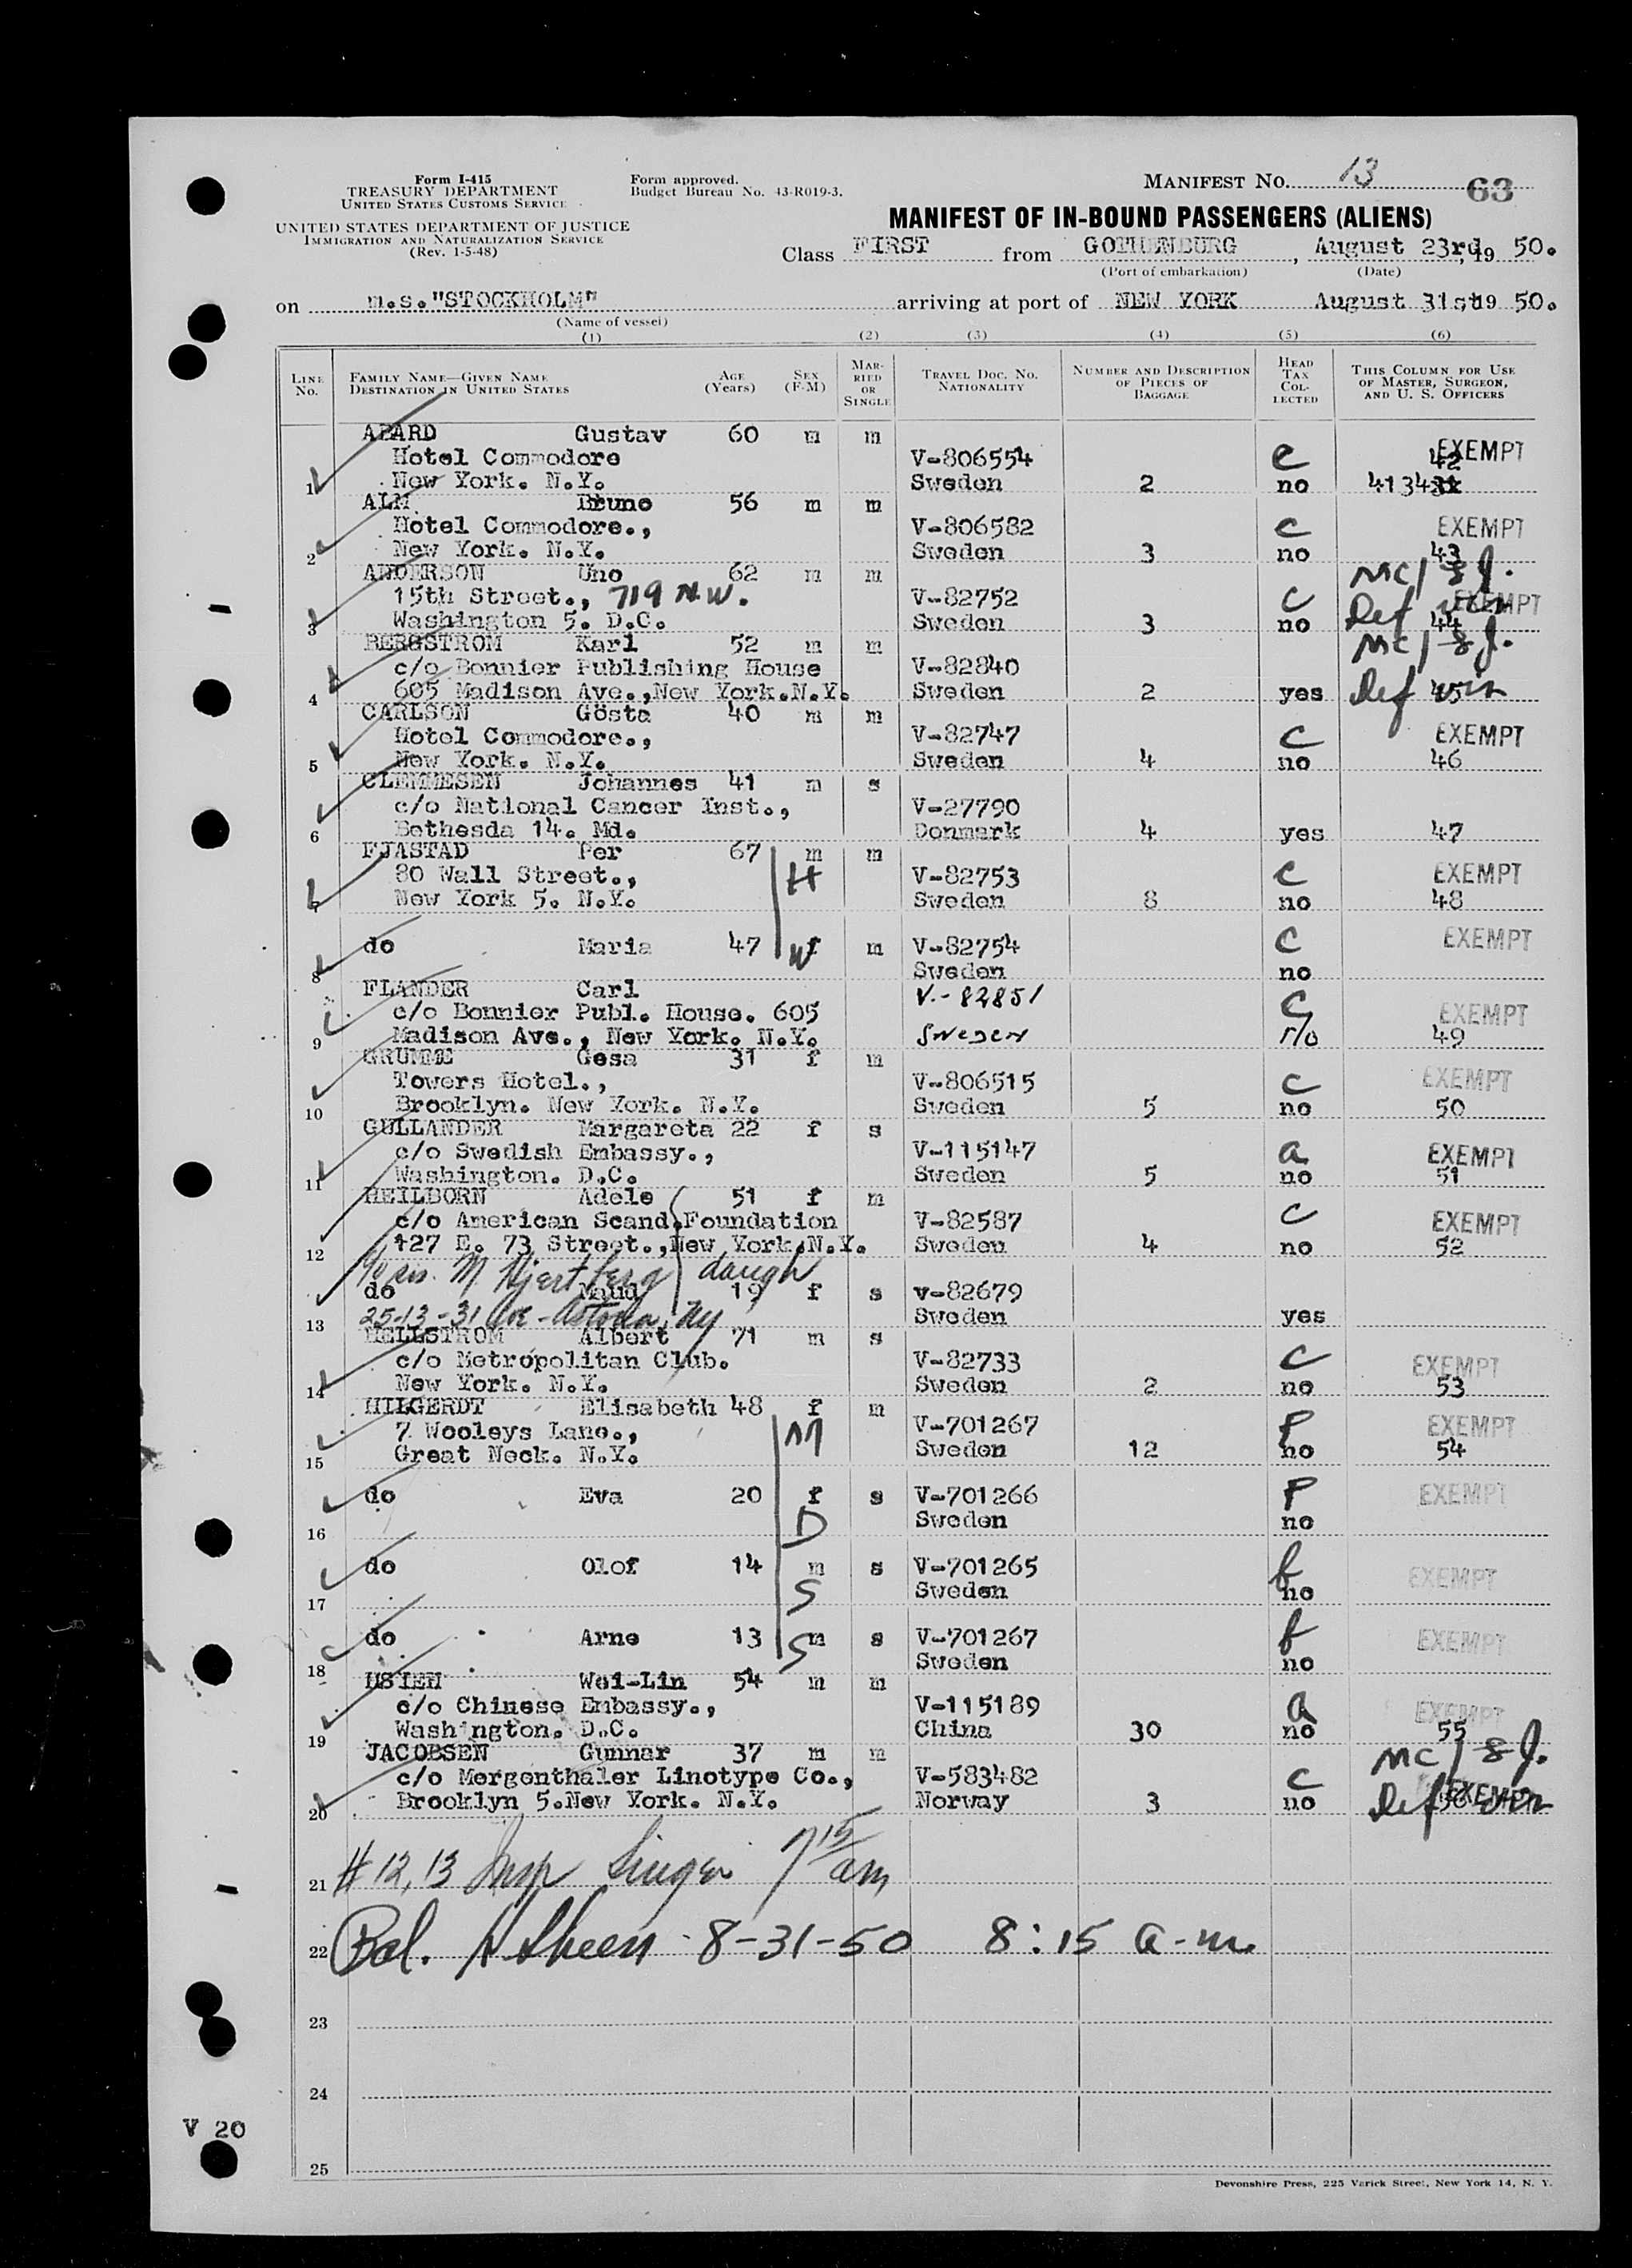 Form I-415
TREASURY DEPARTMENT
UNITED STATES CUSTOMS SERVICE
UNITED STATES DEPARTMENT OF JUSTICE
IMMIGRATION AND NATURALIZATION SERVICE
(Rev. 1-5-48)
Form approved.
Budget Bureau No. 43-R019-3.
MANIFEST NO. 13 63
MANIFEST OF IN-BOUND PASSENGERS (ALIENS)
Class FIRST from GOTHENBURG, August 23rd, 19 50.
(Port of embarkation) (Date)
on m.s."STOCKHOLM" arriving at port of NEW YORK August 31st 19 50.
(Name of vessel)
(1) (2) (3) (4) (5) (6)
LINE NO. FAMILY NAME—GIVEN NAME DESTINATION IN UNITED STATES AGE (Years) SEX (F-M) MARRIED OR SINGLE TRAVEL DOC. NO. NATIONALITY NUMBER AND DESCRIPTION OF PIECES OF BAGGAGE HEAD TAX COLLECTED THIS COLUMN FOR USE OF MASTER, SURGEON, AND U. S. OFFICERS
APARD Gustav 60 m m
Hotel Commodore V-806554 C EXEMPT 42
1 New York. N.Y. Sweden 2 no
ALM Bruno 56 m m
Hotel Commodore., V-806582 C EXEMPT
2 New York. N.Y. Sweden 3 no 43
ANDERSON Uno 62 m m
15th Street., 719 N.W. V-82752 C EXEMPT
3 Washington 5. D.C. Sweden 3 no 44
BERGSTROM Karl 52 m m
c/o Bonnier Publishing House V-82840
4 605 Madison Ave.,New York.N.Y. Sweden 2 yes 45
CARLSON Gösta 40 m m
Hotel Commodore., V-82747 C EXEMPT
5 New York. N.Y. Sweden 4 no 46
CLEMMESEN Johannes 41 m s
c/o National Cancer Inst., V-27790
6 Bethesda 14. Md. Denmark 4 yes 47
FJASTAD Per 67 m m
80 Wall Street., H V-82753 C EXEMPT
7 New York 5. N.Y. Sweden 8 no 48
do Maria 47 f m V-82754 C EXEMPT
8 W Sweden no
FLANDER Carl V.-82851
c/o Bonnier Publ. House. 605 C EXEMPT
9 Madison Ave., New York. N.Y. Sweden no 49
GRUMME Gesa 31 f m
Towers Hotel., V-806515 C EXEMPT
10 Brooklyn. New York. N.Y. Sweden 5 no 50
GULLANDER Margareta 22 f s
c/o Swedish Embassy., V-115147 a EXEMPT
11 Washington. D.C. Sweden 5 no 51
HEILBORN Adele 51 f m
c/o American Scand.Foundation V-82587 C EXEMPT
12 127 E. 73 Street.,New York.N.Y. Sweden 4 no 52
daugh
do Maud 19 f s v-82679
13 25-13-31 Ave - Astoria, NY Sweden yes
HELLSTROM Albert 71 m s
c/o Metropolitan Club. V-82733 C EXEMPT
14 New York. N.Y. Sweden 2 no 53
HILGERDT Elisabeth 48 f m
7 Wooleys Lane., M V-701267 P EXEMPT
15 Great Neck. N.Y. Sweden 12 no 54
do Eva 20 f s V-701266 P EXEMPT
16 D Sweden no
do Olof 14 m s V-701265 EXEMPT
17 S Sweden no
do Arne 13 m s V-701267 EXEMPT
18 S Sweden no
HSIEH Wei-Lin 54 m m
c/o Chinese Embassy., V-115189 a EXEMPT
19 Washington. D.C. China 30 no 55
JACOBSEN Gunnar 37 m m
c/o Mergenthaler Linotype Co., V-583482 C
20 Brooklyn 5.New York. N.Y. Norway 3 no EXEMPT
21 #12, 13 Insp Singer 7 15 am
22 Bal. 8-31-50 8:15 a.m.
23
24
25
V 20
Devonshire Press, 225 Varick Street, New York 14, N. Y.